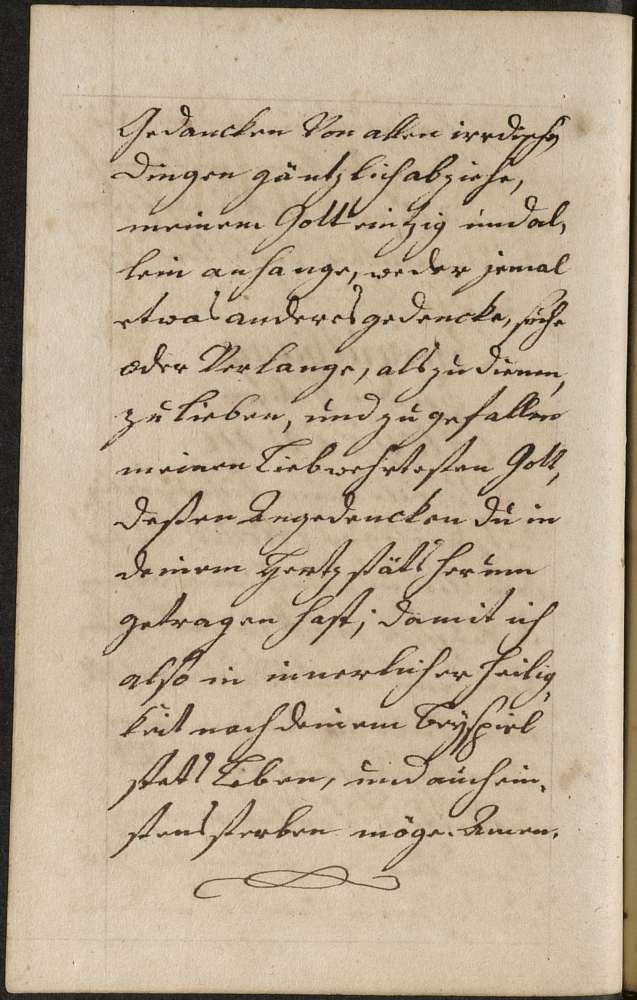 Gedancken Von allen irrdischen
Dingen gäntzlich abziehe,
meinem Gott eintzig und al,
lein anhange, weder jemal
etwas anderes gedencke, suche
oder Verlange, als zu dienen,
zu lieben, und zu gefallen
meinen Liebwehrtesten Gott,
deßen Angedencken du in
deinem Hertz stäts herum
getragen hast; damit ich
also in innerlicher Heilig,
keit nach deinem Beyspiel
stets Leben, und auch ein,
stens sterben möge. Amen.